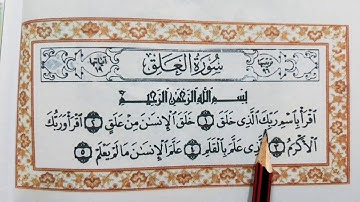 سُورَةُ الْعَلَقِ
بِسْمِ اللَّهِ الرَّحْمَٰنِ الرَّحِيمِ
اقْرَأْ بِاسْمِ رَبِّكَ الَّذِي خَلَقَ ١ خَلَقَ الْإِنسَانَ مِنْ عَلَقٍ ٢ اقْرَأْ وَرَبُّكَ
الْأَكْرَمُ ٣ الَّذِي عَلَّمَ بِالْقَلَمِ ٤ عَلَّمَ الْإِنسَانَ مَا لَمْ يَعْلَمْ ٥